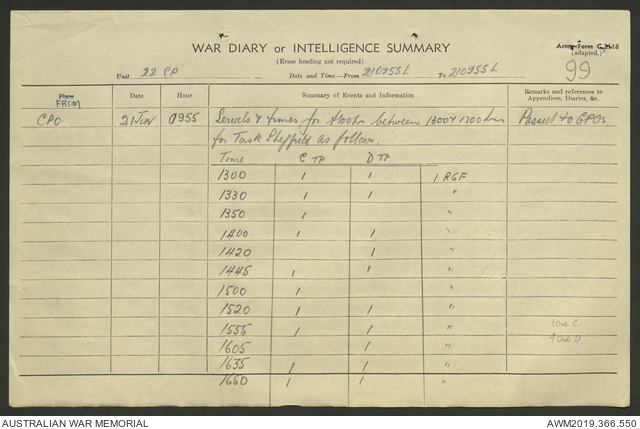 WAR DIARY or INTELLIGENCE SUMMARY
(Erase heading not required)
Army Form C.2118
(adapted.)
99
Unit 22 CP Date and Time—From 210955L To 210955L
Place Date Hour Summary of Events and Information Remarks and references to
FROM Appendices, Diaries, &c.
CPO 21 Jun 0955 Serials & times for between 1300 & 1700 hrs Passed to GPOs.
for Task Sheffield as follows.
Time C TP D TP
1300 1 1 1 RGF
1330 1 1 "
1350 1 "
1400 1 1 "
1420 1 "
1445 1 1 "
1500 1 "
1520 1 1 "
1555 1 1 "
1605 1 "
1635 1 1 "
1650 1 1 "
AUSTRALIAN WAR MEMORIAL AWM2019.366.550